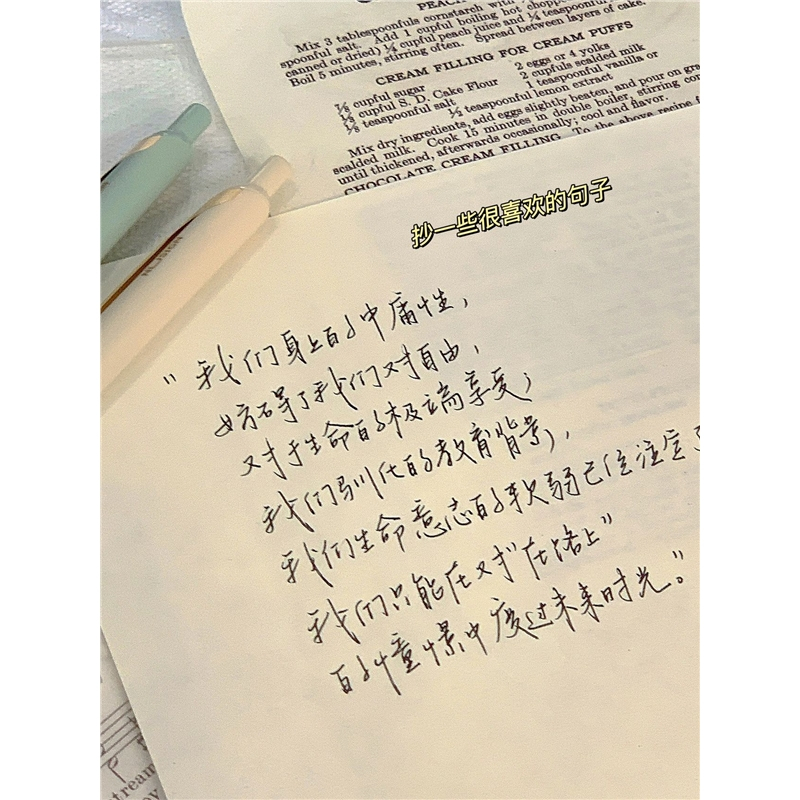 Mix 3 tablespoonfuls cornstarch with
spoonful salt. Add 1 cupful boiling hot
canned or dried) ¼ cupful peach juice and ¼ teaspoonful
Boil 5 minutes, stirring often. Spread between layers of cake.
CREAM FILLING FOR CREAM PUFFS
cupful sugar 2 eggs or 4 yolks
cupful S. D. Cake Flour 2 cupfuls scalded milk
⅛ teaspoonful salt 1 teaspoonful vanilla or
½ teaspoonful lemon extract
Mix dry ingredients, add eggs slightly beaten, and pour on
scalded milk. Cook 15 minutes in double boiler, stirring
until thickened, afterwards occasionally; cool and flavor.
CHOCOLATE CREAM FILLING. To the above recipe
抄一些很喜欢的句子
“我们身上的中庸性,
妨碍了我们对自由,
对于生命的极端享受;
我们驯化的教育背景,
我们生命意志的软弱已经注定了
我们只能在对“在路上”
的憧憬中度过未来时光。”
stream